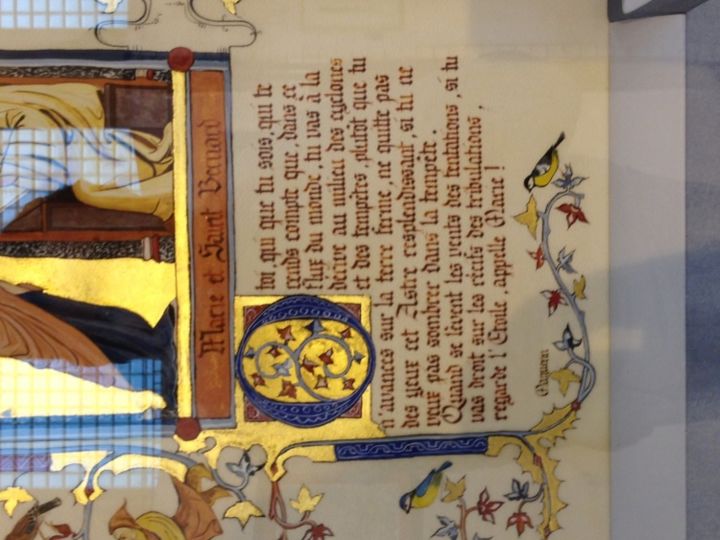 Marie et Saint Bernard
O toi qui que tu sois, qui te
rends compte que, dans ce
flux du monde, tu vas à la
dérive au milieu des cyclones
et des tempêtes, plutôt que tu
n'avances sur la terre ferme, ne quitte pas
des yeux cet Astre resplendissant, si tu ne
veux pas sombrer dans la tempête.
Quand se lèvent les vents des tentations, si tu
vas droit sur les récifs des tribulations,
regarde l'Etoile, appelle Marie !